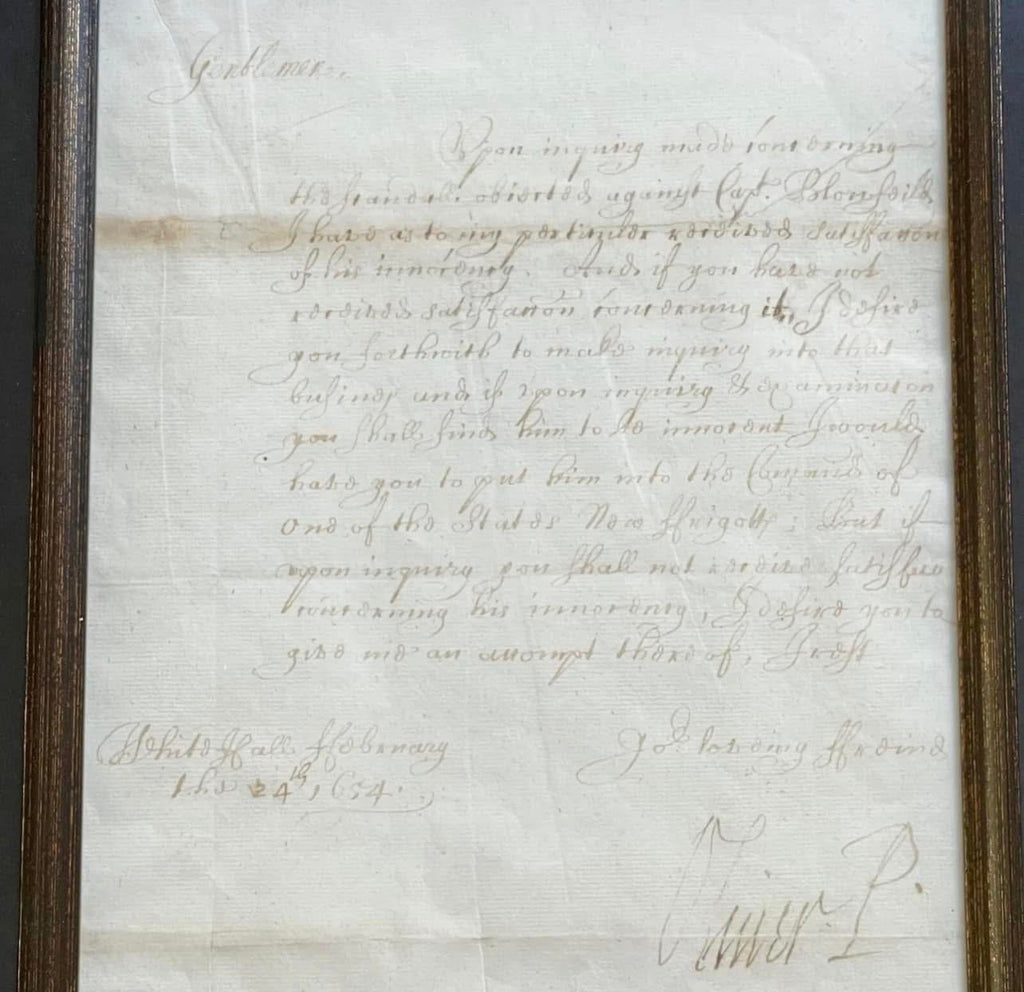 Gentlemen.
Upon inquiry made concerning
the scandall obiected against Capt. Blomfeild
I have as to my perticuler received satisfaccon
of his innocency. And if you have not
received satisfaccon concerning it, I desire
you forthwith to make inquiry into that
busines and if upon inquiry & examinacon
you shall find him to be innocent I would
have you to put him into the Comand of
one of the States New ffrigotts; But if
upon inquiry you shall not receive satisfaco
concerning his innocency, I desire you to
give me an accompt thereof, I rest
White Hall ffebruary
the 24th, 1654.
Yor. loveing ffreind
Oliver P.